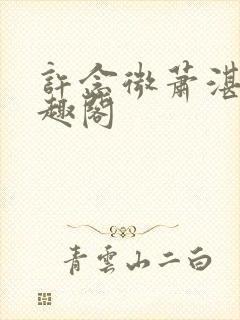 許念微蕭湛
趣閣
青雲山二白